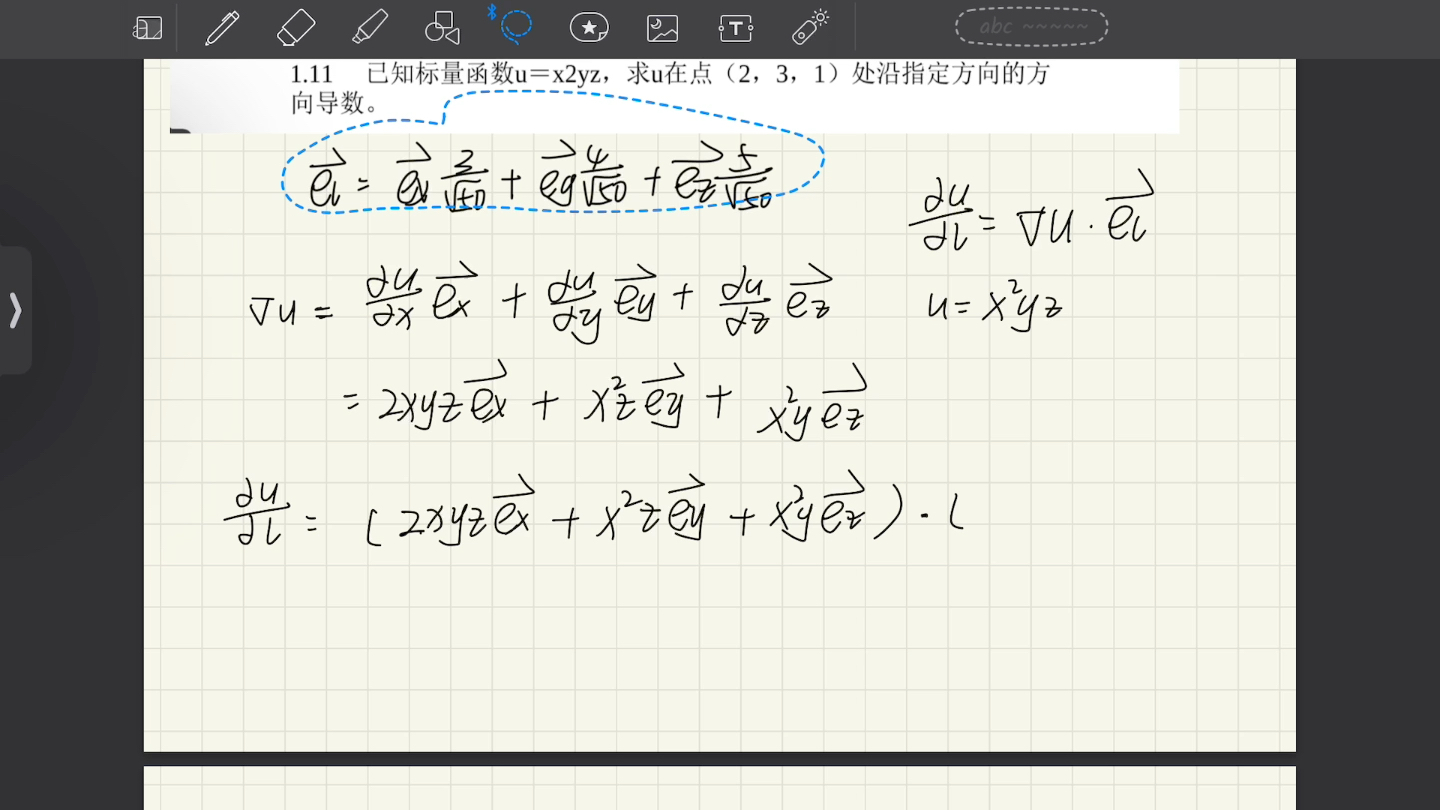 abc ~~~~~
1.11 已知标量函数u＝x2yz，求u在点（2，3，1）处沿指定方向的方
向导数。
\vec{e_l} = \vec{e_x} \frac{3}{\sqrt{50}} + \vec{e_y} \frac{4}{\sqrt{50}} + \vec{e_z} \frac{5}{\sqrt{50}}
\frac{∂u}{∂l} = ∇u · \vec{e_l}
∇u = \frac{∂u}{∂x} \vec{e_x} + \frac{∂u}{∂y} \vec{e_y} + \frac{∂u}{∂z} \vec{e_z}
u = x²yz
= 2xyz \vec{e_x} + x²z \vec{e_y} + x²y \vec{e_z}
\frac{∂u}{∂l} = ( 2xyz \vec{e_x} + x²z \vec{e_y} + x²y \vec{e_z} ) · (